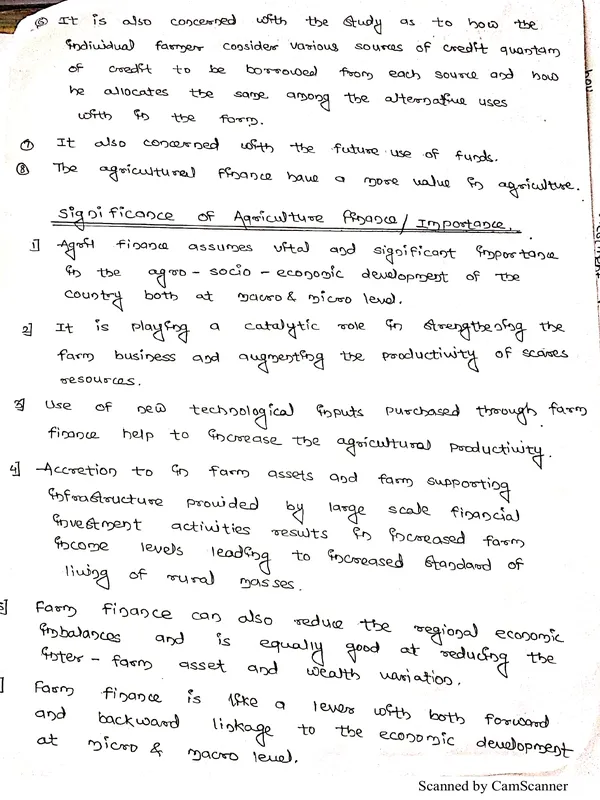 ⑥ It is also concerned with the study as to how the
individual farmer consider various sources of credit quantam
of credit to be borrowed from each source and how
he allocates the same among the alternative uses
with in the farm.
⑦ It also concerned with the future use of funds.
⑧ The agricultural finance have a more value in agriculture.
Significance of Agriculture finance / Importance.
1] Agril finance assumes vital and significant importance
in the agro - socio - economic development of the
country both at macro & micro level.
2] It is playing a catalytic role in strengthening the
farm business and augmenting the productivity of scares
resources.
3] Use of new technological inputs purchased through farm
finance help to increase the agricultural productivity.
4] Accretion to in farm assets and farm supporting
infrastructure provided by large scale financial
investment activities results in increased farm
income levels leading to increased standard of
living of rural masses.
5] Farm finance can also reduce the regional economic
imbalances and is equally good at reducing the
inter - farm asset and wealth variation.
] Farm finance is like a lever with both forward
and backward linkage to the economic development
at micro & macro level.
Scanned by CamScanner